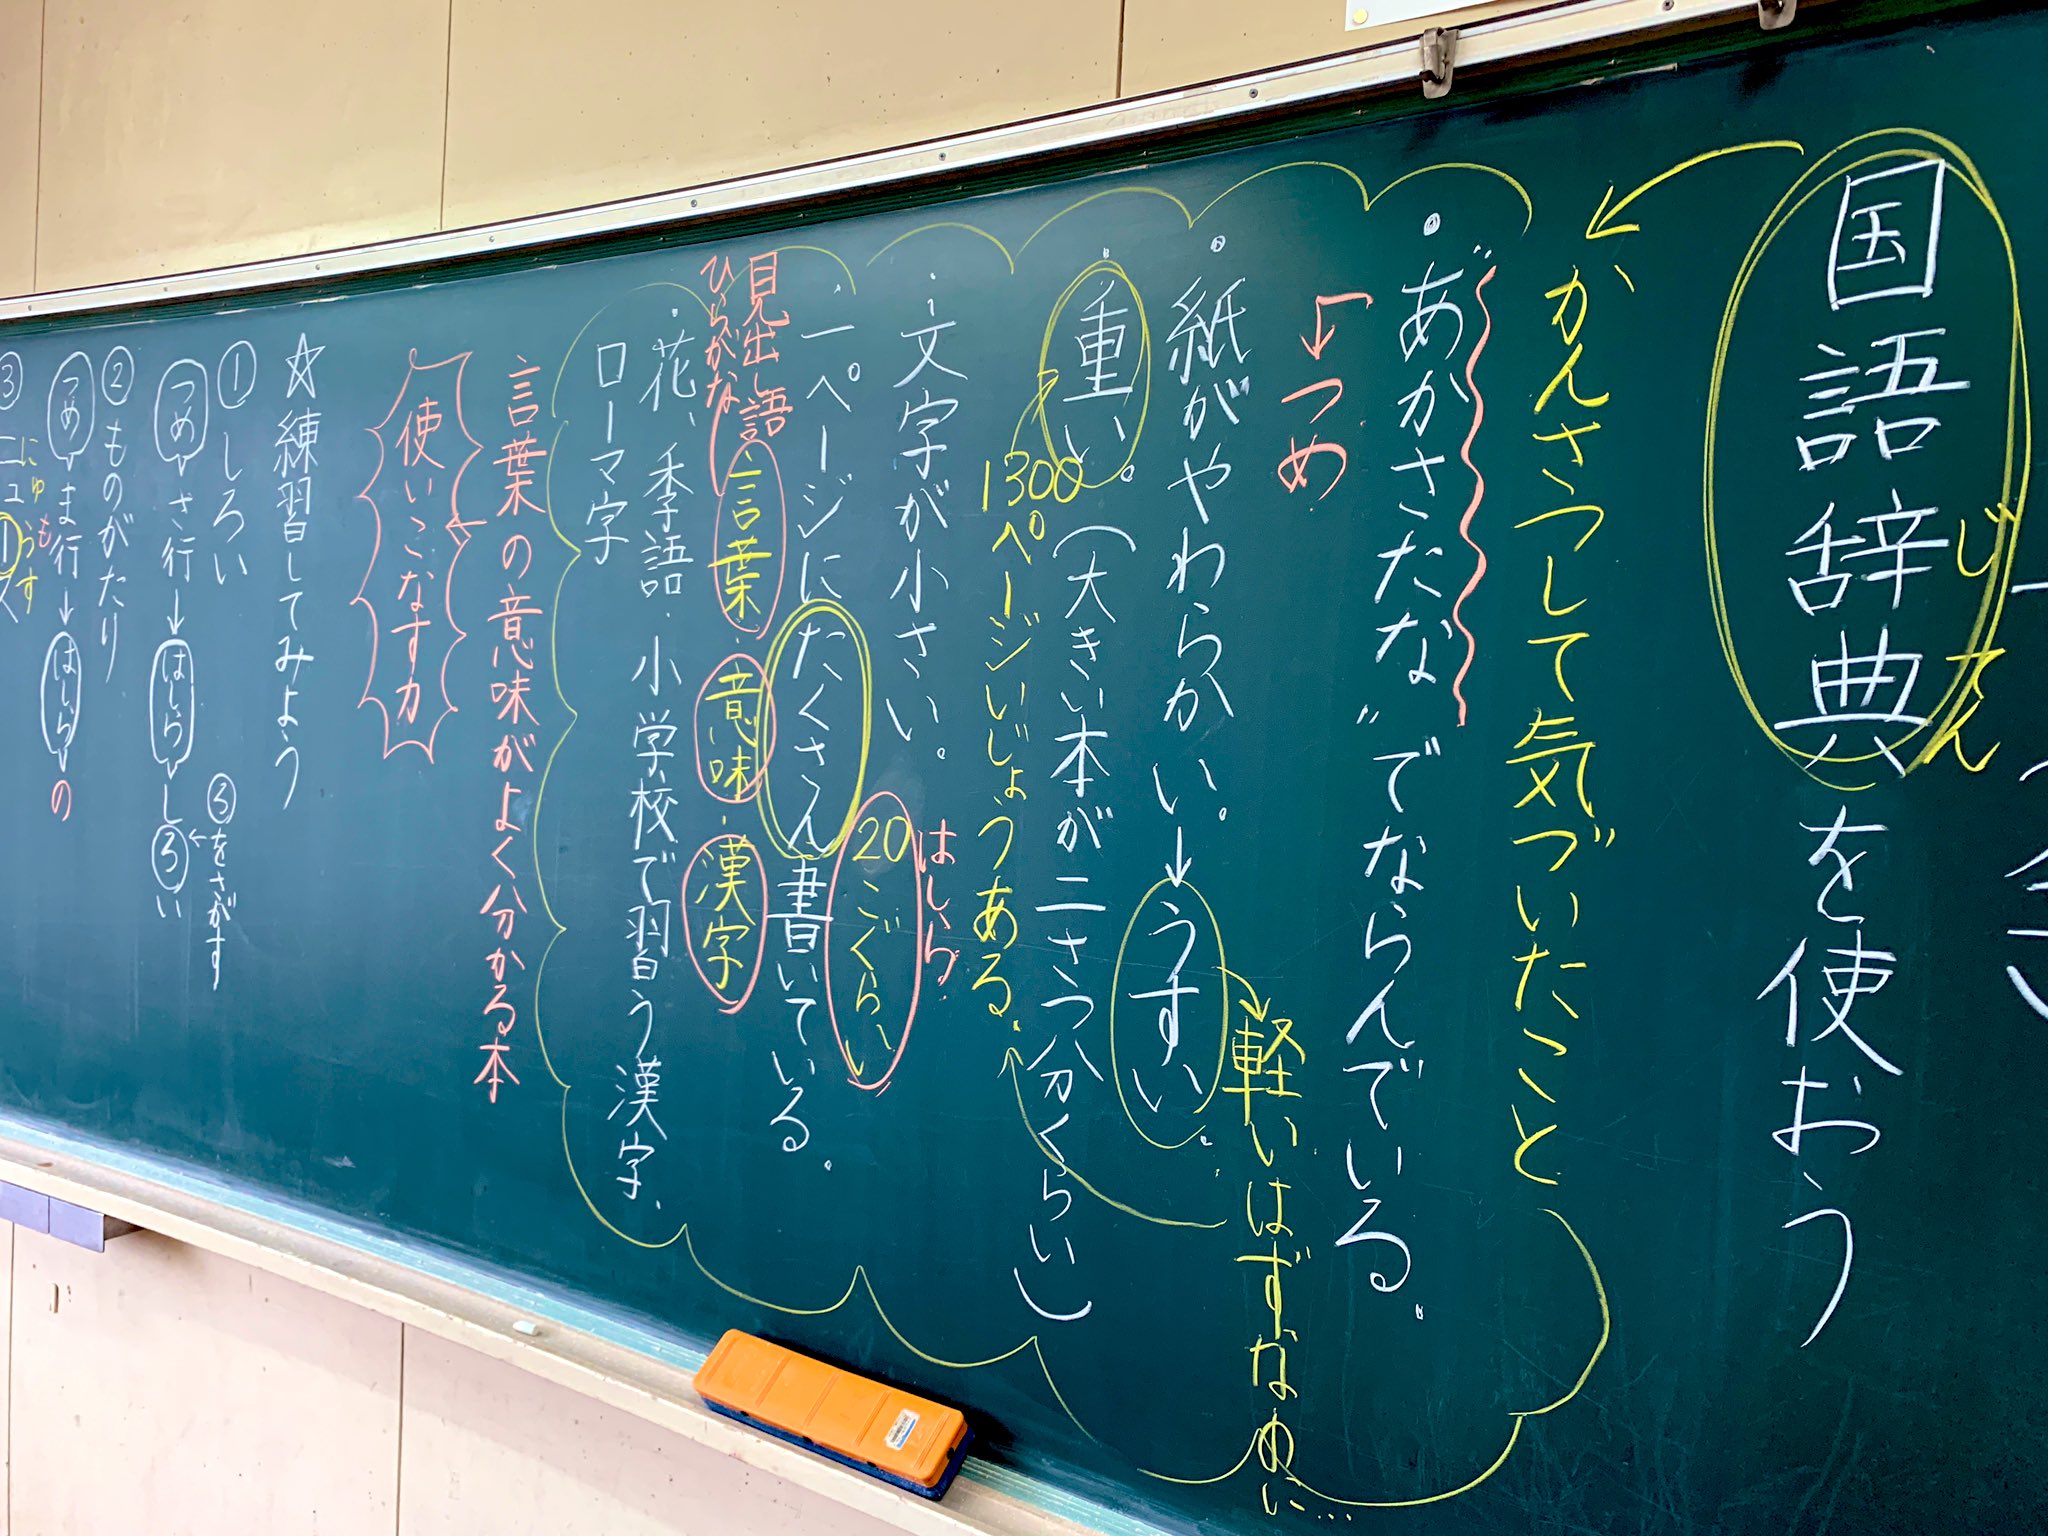 国語辞典を使おう
じてん
かんさつして気づいたこと
・"あかさたな"でならんでいる。
つめ
・紙がやわらかい。→うすい。
軽いはずなのに…
・重い。(大きい本が二さつ分くらい)
1300ページいじょうある。
・文字が小さい。
はしら
20こぐらい
・一ページにたくさん書いている。
見出し語
ひらがな
言葉・意味・漢字
・花、季語・小学校で習う漢字、
ローマ字
言葉の意味がよく分かる本
使いこなす力
☆練習してみよう
①しろい
つめ さ行→はしら し ろ い
ろをさがす
②ものがたり
つめ ま行→はしら の
も
③
にゅうす